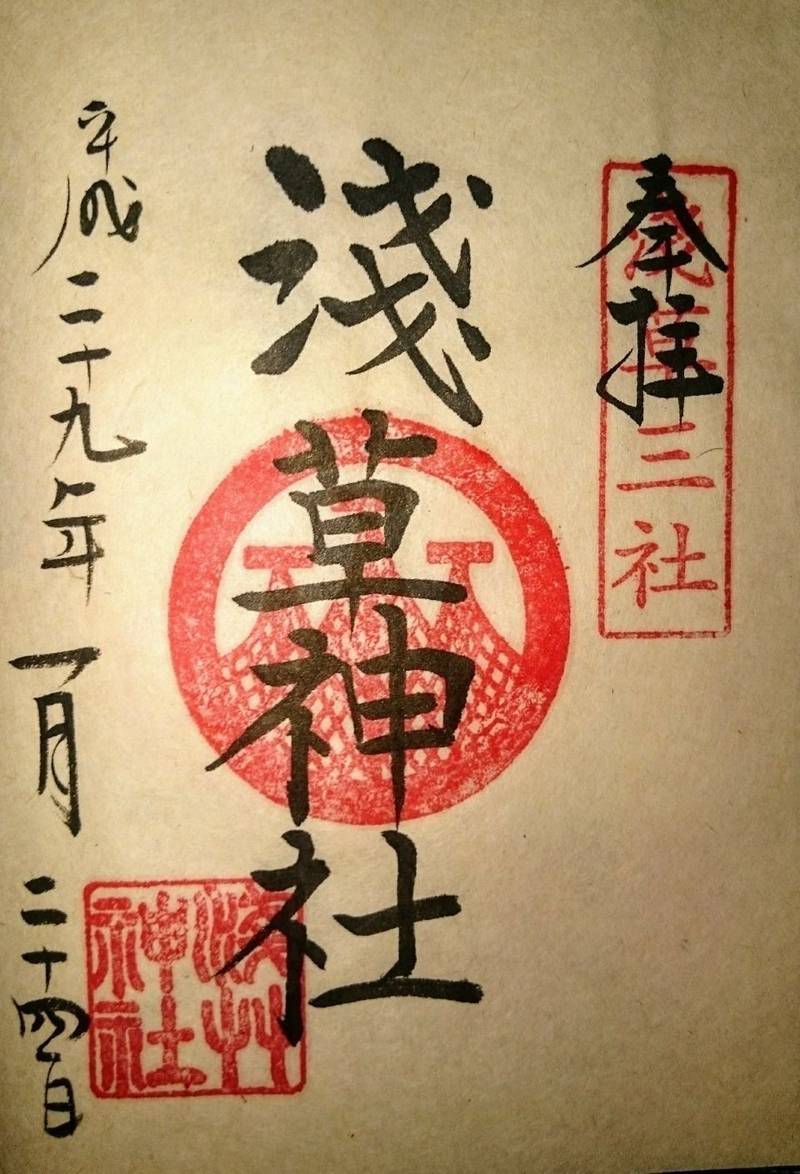 奉拝
淺草三社
淺草神社
淺艸
神社
平成二十九年一月二十四日